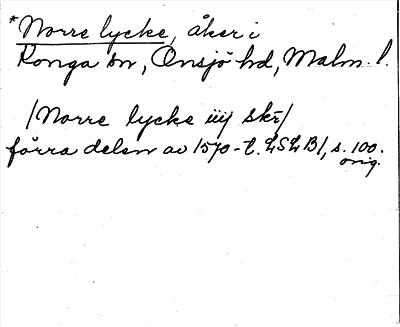 *Norre lycke, åker i
Konga sn, Onsjö hd, Malm. l.
/Norre lycke iiij skr/
förra delen av 1570-t. LSLB/, s. 100.
orig.